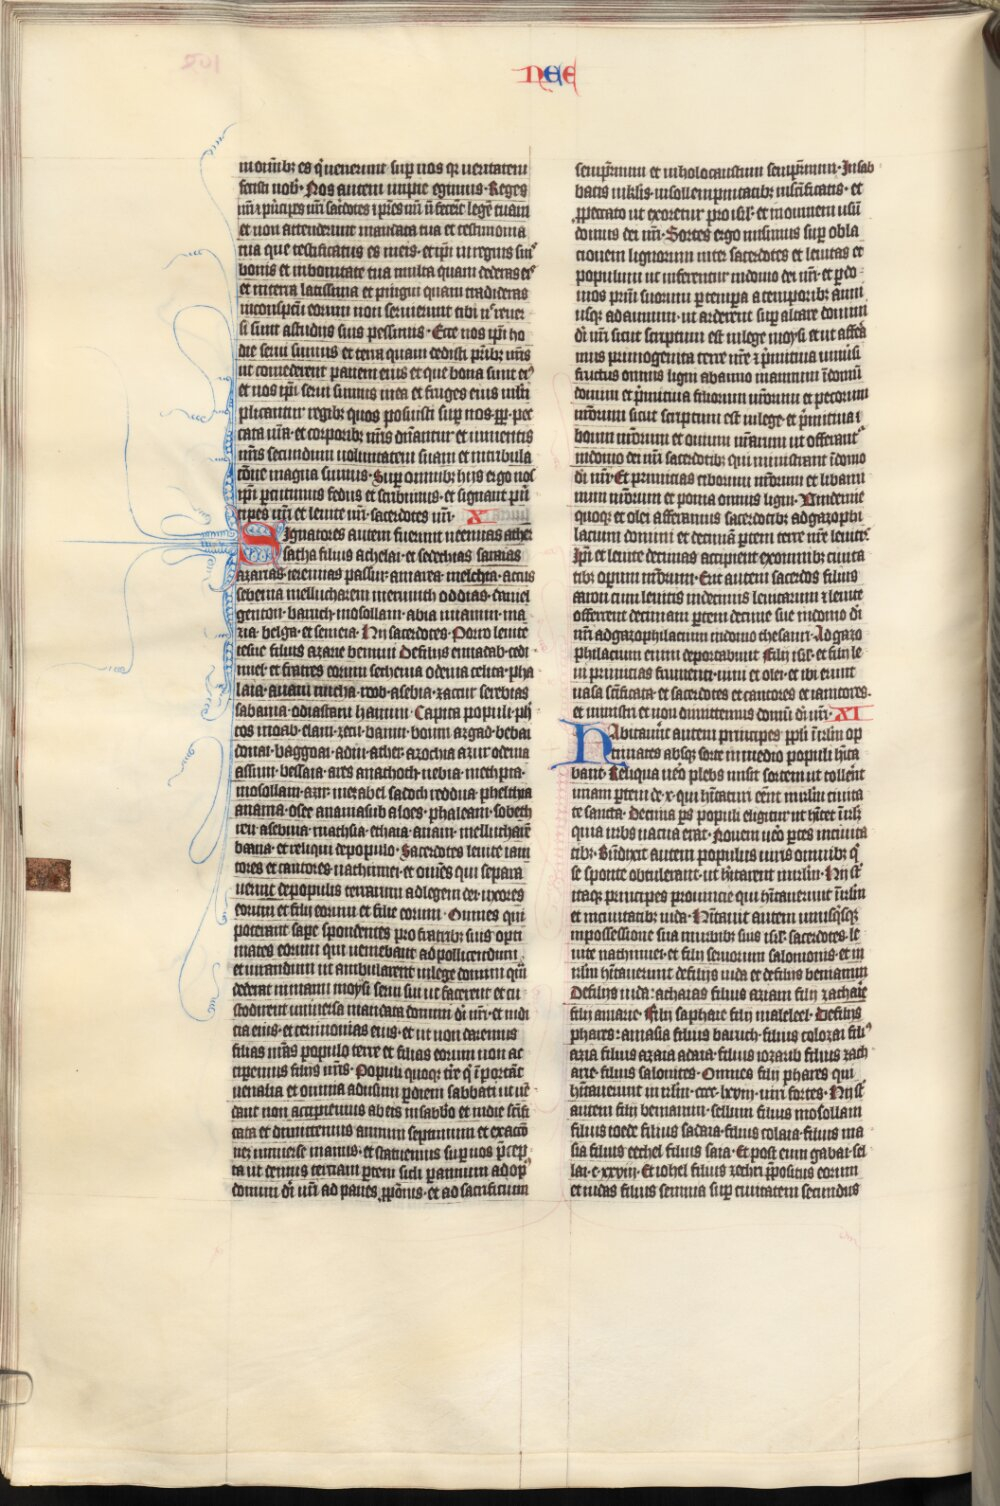 NEE
in omnibꝫ es q̄ venerunt suꝑ nos qꝛ veritatem
fecisti nob̄· Nos autem impie egimus· Reges
nr̄i ⁊ pͥncipes nr̄i sacͥdotes ⁊ pr̄es nr̄i n̄ fecert̄ legē tuam
et non attenderunt mandata tua et testimonia
tua que testificatus es in eis· et ip̄i in regnis suis
bonis et in bonitate tua multa quam dederas eis
et in terra latissima et pingui quam tradideras
in conspc̄tu eorum non servierunt tibi nͨ rever
si sunt a studiis suis pessimis· Ecce nos ip̄i ho
die servi sumus et terra quam dedisti pr̄ibꝫ nr̄is
ut comederent panem eius et que bona sunt eiꝰ
et nos ip̄i servi sumus in ea et fruges eius mͣlti
plicantur regibꝫ quos posuisti suꝑ nos ꝓpͭ pec
cata nr̄a· et corporibꝫ nr̄is dn̄antur et iumentis
nr̄is secundum voluntatem suam et in tribula
cōne magna sumus· Suꝑ omnibꝫ hiis ergo nos
ip̄i percutimus fedus et scribimus· et signant pͥn
cipes nr̄i et levite nr̄i· sacerdotes nr̄i· X
Signatores autem fuerunt neemias ather
satha filius achelai· et sedechias saraias
azarias· ieremias passur· amarea· melchia· accus
sebenia mellucharem merimuth oddias· daniel
genton· baruch· mosollam· abia miamin· ma
zia· belga· et semeia· Hii sacerdotes· Porro levite
iesue filius azane bennui de filiis ennadab· cedi
miel· et fratres eorum sechenia odevia celita· pha
laia· anani micha· roob· asebia· zaccur serebias
sabania· odiastani hanini· Capita populi· ph̄
eos moab· elam· zeti· banni· bonni azgad· bebai
donai· baggoai· adin· ather· azochia azur odenia
assum· bessaia· ares anathoth· nebia· methpia·
mosollam· azir· mezabel sadoch reddua· phelthia
anania· osee anania sub aloes· phaleam· sobeth
reu asebnia· mathsia· ethaia· anam· melluchare
bana· et reliqui de populo· Sacerdotes levite iani
tores et cantores· nachinnei· et om̄es qui separa
verunt de populis terrarum ad legem dei· uxores
eorum et filii eorum et filie eorum· Omnes qui
poterant saꝑe spondentes pro fratribꝫ suis opti
mates eorum qui veniebant ad pollicendum
et iurandum ut ambularent in lege domini quā
dederat in manu moysi servi sui ut facerent et cu
stodirent universa mandata domini di nr̄i· et iudi
cia eius· et cerimonias eius· et ut non daremus
filias nr̄as populo terre et filias eorum non ac
ciperemus filiis nr̄is· Populi quoqꝫ tr̄e q̄ īportāt
venalia et omnia ad usum ꝑ diem sabbati ut vē
dant non accipiemus ab eis in sabbo et in die scīfi
cata et dimittemus annum septimum et exactō
nez universe manus· et statuemus suꝑ nos pͨcep
ta ut demus terciam ꝑtem sicli ꝑ annum ad opꝰ
domini di nr̄i ad panes ꝓpōnis· et ad sacrificium
sempit̄num et in holocaustum sempit̄num· In sab
batis in klīs· in sollempnitatibꝫ in scīficatis· et
ꝓ peccato ut exoretur pro isrl̄· et in omnem usū
domus dei nr̄i· Sortes ergo misimus suꝑ obla
tionem lignorum inter sacerdotes et levitas et
populum ut inferrentur in domo dei nr̄i· et ꝑ do
mos pr̄m suorum ꝑ tempora a temporibꝫ anni
usqꝫ ad annum· ut arderent suꝑ altare domini
di nr̄i sicut scriptum est in lege moysi et ut affera
mus primogenita terre nr̄e ⁊ pͥmitiva univͥsi
fructus omnis ligni ab anno in annum ī domū
domini et pͥmitiva filiorum nr̄orum et pecorum
nr̄orum sicut scriptum est in lege· et pͥmitiva
boum nr̄orum et ovium nr̄arum ut offerant
in domo dei nr̄i sacerdotibꝫ qui ministrant ī domo
di nr̄i· Et primitias ciborum nr̄orum et libami
num nr̄orum et poma omnis ligni· Vindemie
quoqꝫ et olei afferamus sacerdotibꝫ ad gazophi
lacium domini et decimā ꝑtem terre nr̄e levitis
Ip̄i et levite decimas accipient ex omnibꝫ civita
tibꝫ operum nr̄orum· Erit autem sacerdos filius
aaron cum levitis in decimis levitarum ⁊ levite
offerrent decimam ꝑtem decime sue in domo di
nr̄i ad gazophilacium in domo thesauri· Ad gazo
philacium enim deportabunt filii isrl̄· et filii le
vi primitias frumenti· vini et olei· et ibi erunt
vasa scīficata· et sacerdotes et cantores et ianitores·
et ministri et non dimittemus domū di nr̄i· XI
Habitavert̄ autem principes ppl̄i ī irl̄m op
timates absqꝫ sorte in medio populi hīta
bant· Reliqua vͦo plebs misit sortem ut tolleret
unam ꝑtem de·x· qui hītaturi eēnt in irl̄m civita
te sancta· Decima ꝑs populi eligitur ut hītet ī irl̄m
quia urbs vacua erat· Novem vͦo ꝑtes in civita
tibꝫ· Bn̄dixit autem populus viris omnibꝫ q̄
se sponte obtulerant· ut hītarent in irl̄m· Hii st̄
itaqꝫ principes provincie qui hītaverunt ī irl̄m
et in civitatibꝫ iuda· Hītavit autem unusqͥsqꝫ
in possessione sua in urbibꝫ suis isrl̄· sacerdotes· le
vite nathinnei· et filii servorum salomonis· et in
irl̄m hītaverunt de filiis iuda et de filiis beniamin
De filiis iuda· acharas filius aziam filii zacharie
filii amarie· Filii saphare filii maleleel· De filiis
phares· amasia filius baruch· filius colozai filiꝰ
azia filius azaia adaia· filius iozarib filius zach
arie· filius salonites· Omnes filii phares qui
hītaverunt in irl̄m· cccc·lxviii· viri fortes· Hii st̄
autem filii beniamin· sellum filius mosollam
filius ioede filius sadaia· filius colaia· filius ma
sia filius eethel filius saia· Et post eum gabai· sel
lai·c·xxviii· Et iohel filius zechri ꝓpositus eorum
et iudas filius sennua suꝑ civitatem secundus